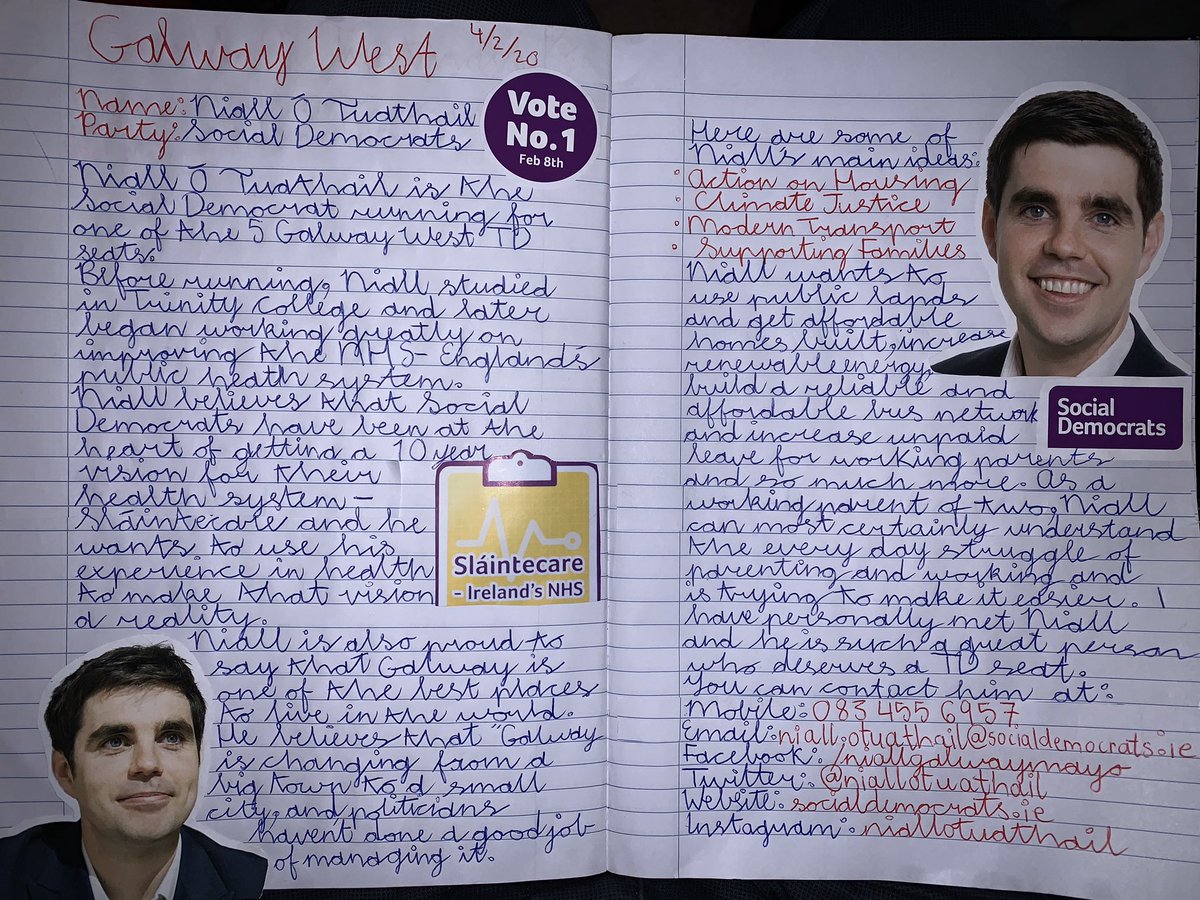 Galway West 4/2/20
Name: Niall Ó Tuathail
Party: Social Democrats
Vote
No.1
Feb 8th
Niall Ó Tuathail is the
Social Democrat running for
one of the 5 Galway West TD
seats.
Before running, Niall studied
in Trinity College and later
began working greatly on
improving the NHS- England's
public heath system.
Niall believes that Social
Democrats have been at the
heart of getting a 10 year
vision for their
health system -
Sláintecare and he
wants to use his
experience in health
to make that vision
a reality.
Sláintecare
– Ireland's NHS
Niall is also proud to
say that Galway is
one of the best places
to live in the world.
He believes that "Galway
is changing from a
big town to a small
city, and politicians
havent done a good job
of managing it.
Here are some of
Niall's main ideas:
• Action on Housing
• Climate Justice
• Modern Transport
• Supporting Families
Niall wants to
use public lands
and get affordable
homes built, increase
renewable energy,
build a reliable and
affordable bus network
and increase unpaid
leave for working parents
and so much more. As a
working parent of two, Niall
can most certainly understand
the every day struggle of
parenting and working and
is trying to make it easier. I
have personally met Niall
and he is such a great person
who deserves a TD seat.
You can contact him at:
Mobile: 083 455 6957
Email: niall.otuathail@socialdemocrats.ie
Facebook: /niallgalwaymayo
Twitter: @niallotuathail
Website: socialdemocrats.ie
Instagram: niallotuathail
Social
Democrats